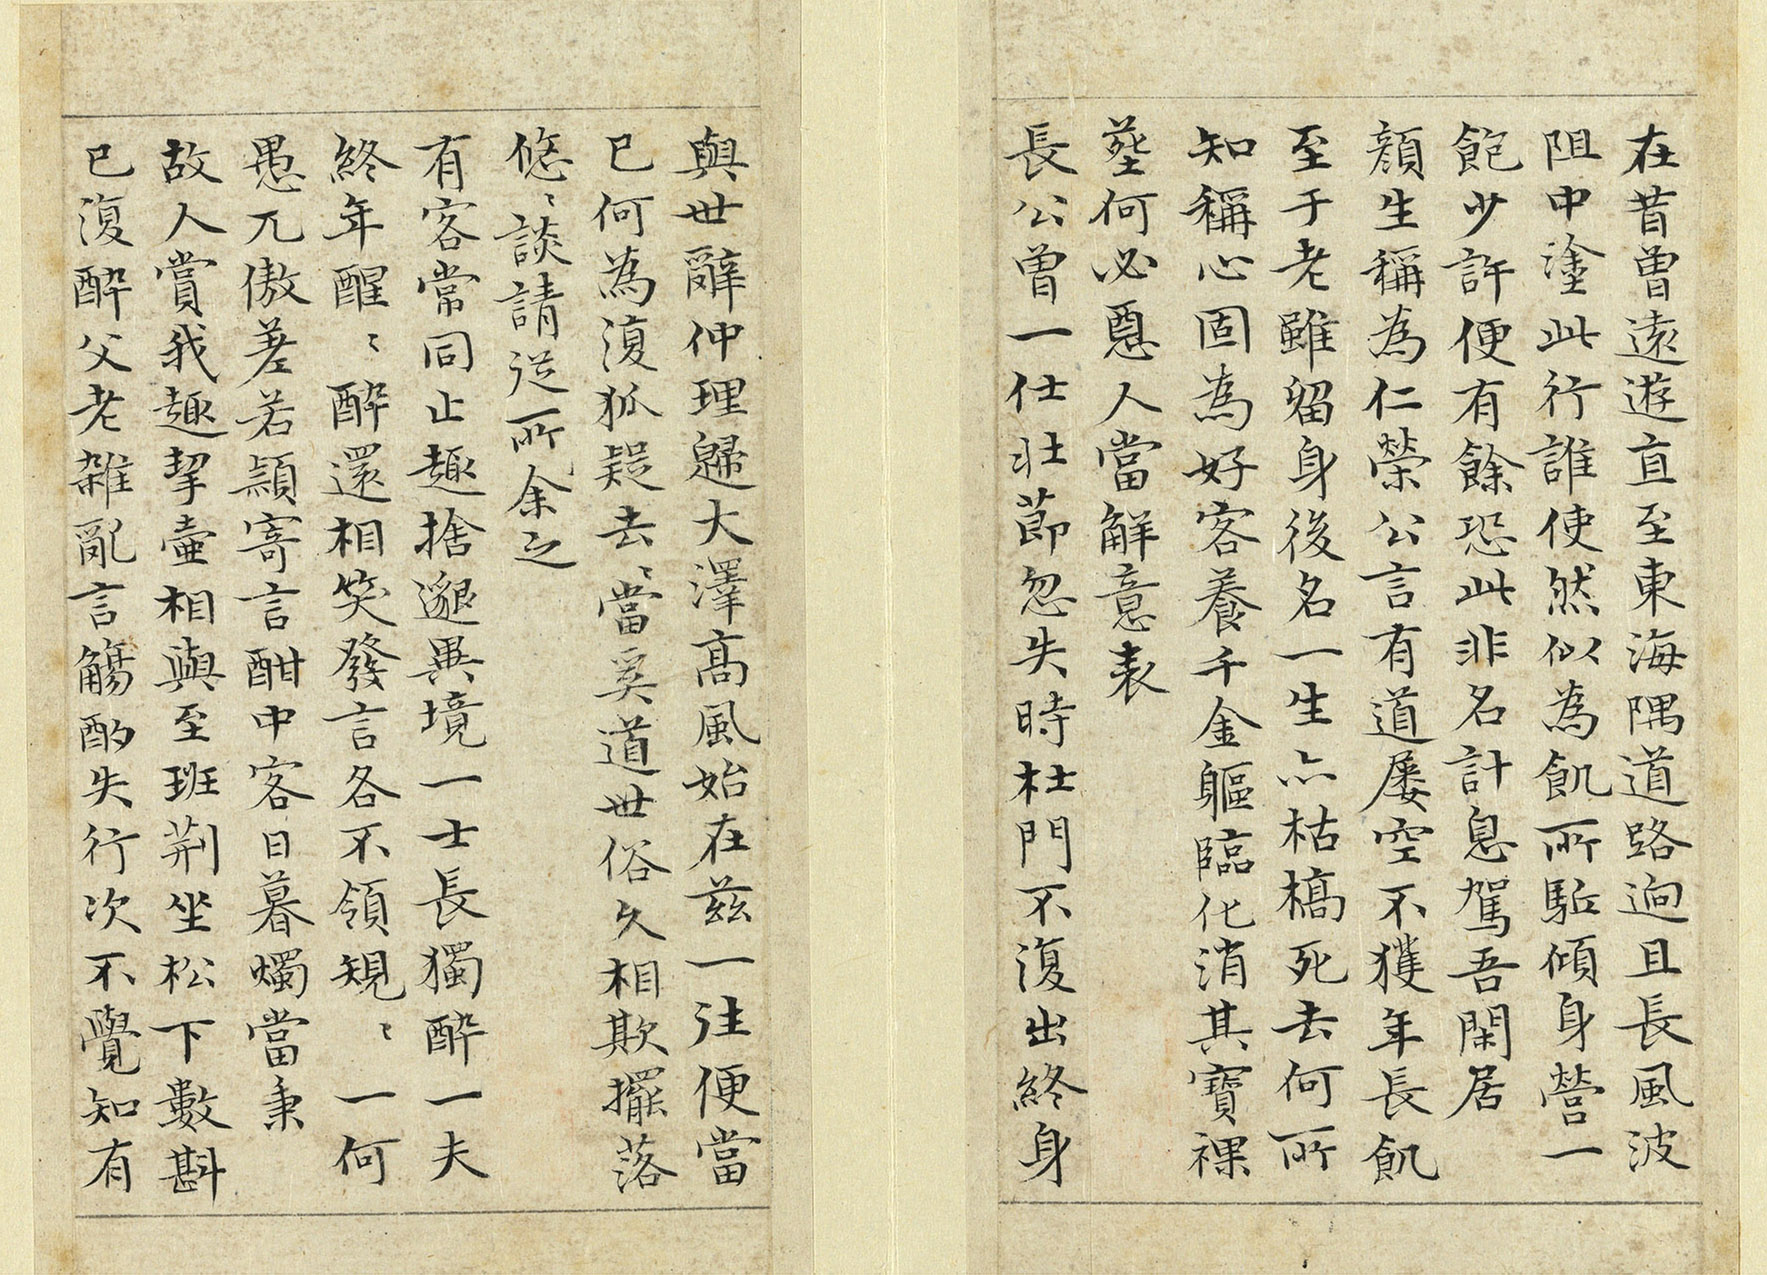 在昔曾遠遊直至東海隅道路迥且長風波
阻中塗此行誰使然似為飢所駈傾身營一
飽少許便有餘恐此非名計息駕吾閑居
顏生稱為仁榮公言有道屢空不獲年長飢
至于老雖留身後名一生亦枯槁死去何所
知稱心固為好客養千金軀臨化消其寶裸
葬何必惡人當解意表
長公曾一仕壯莭忽失時杜門不復出終身
與世辭仲理歸大澤高風始在茲一往便當
已何為復狐疑去〻當奚道世俗久相欺擺落
悠〻談請從所余之
有客常同止趣捨邈異境一士長獨醉一夫
終年醒〻醉還相笑發言各不領規〻一何
愚兀傲差若穎寄言酣中客日暮燭當秉
故人賞我趣挈壺相與至班荆坐松下數斟
已復醉父老雜亂言觴酌失行次不覺知有